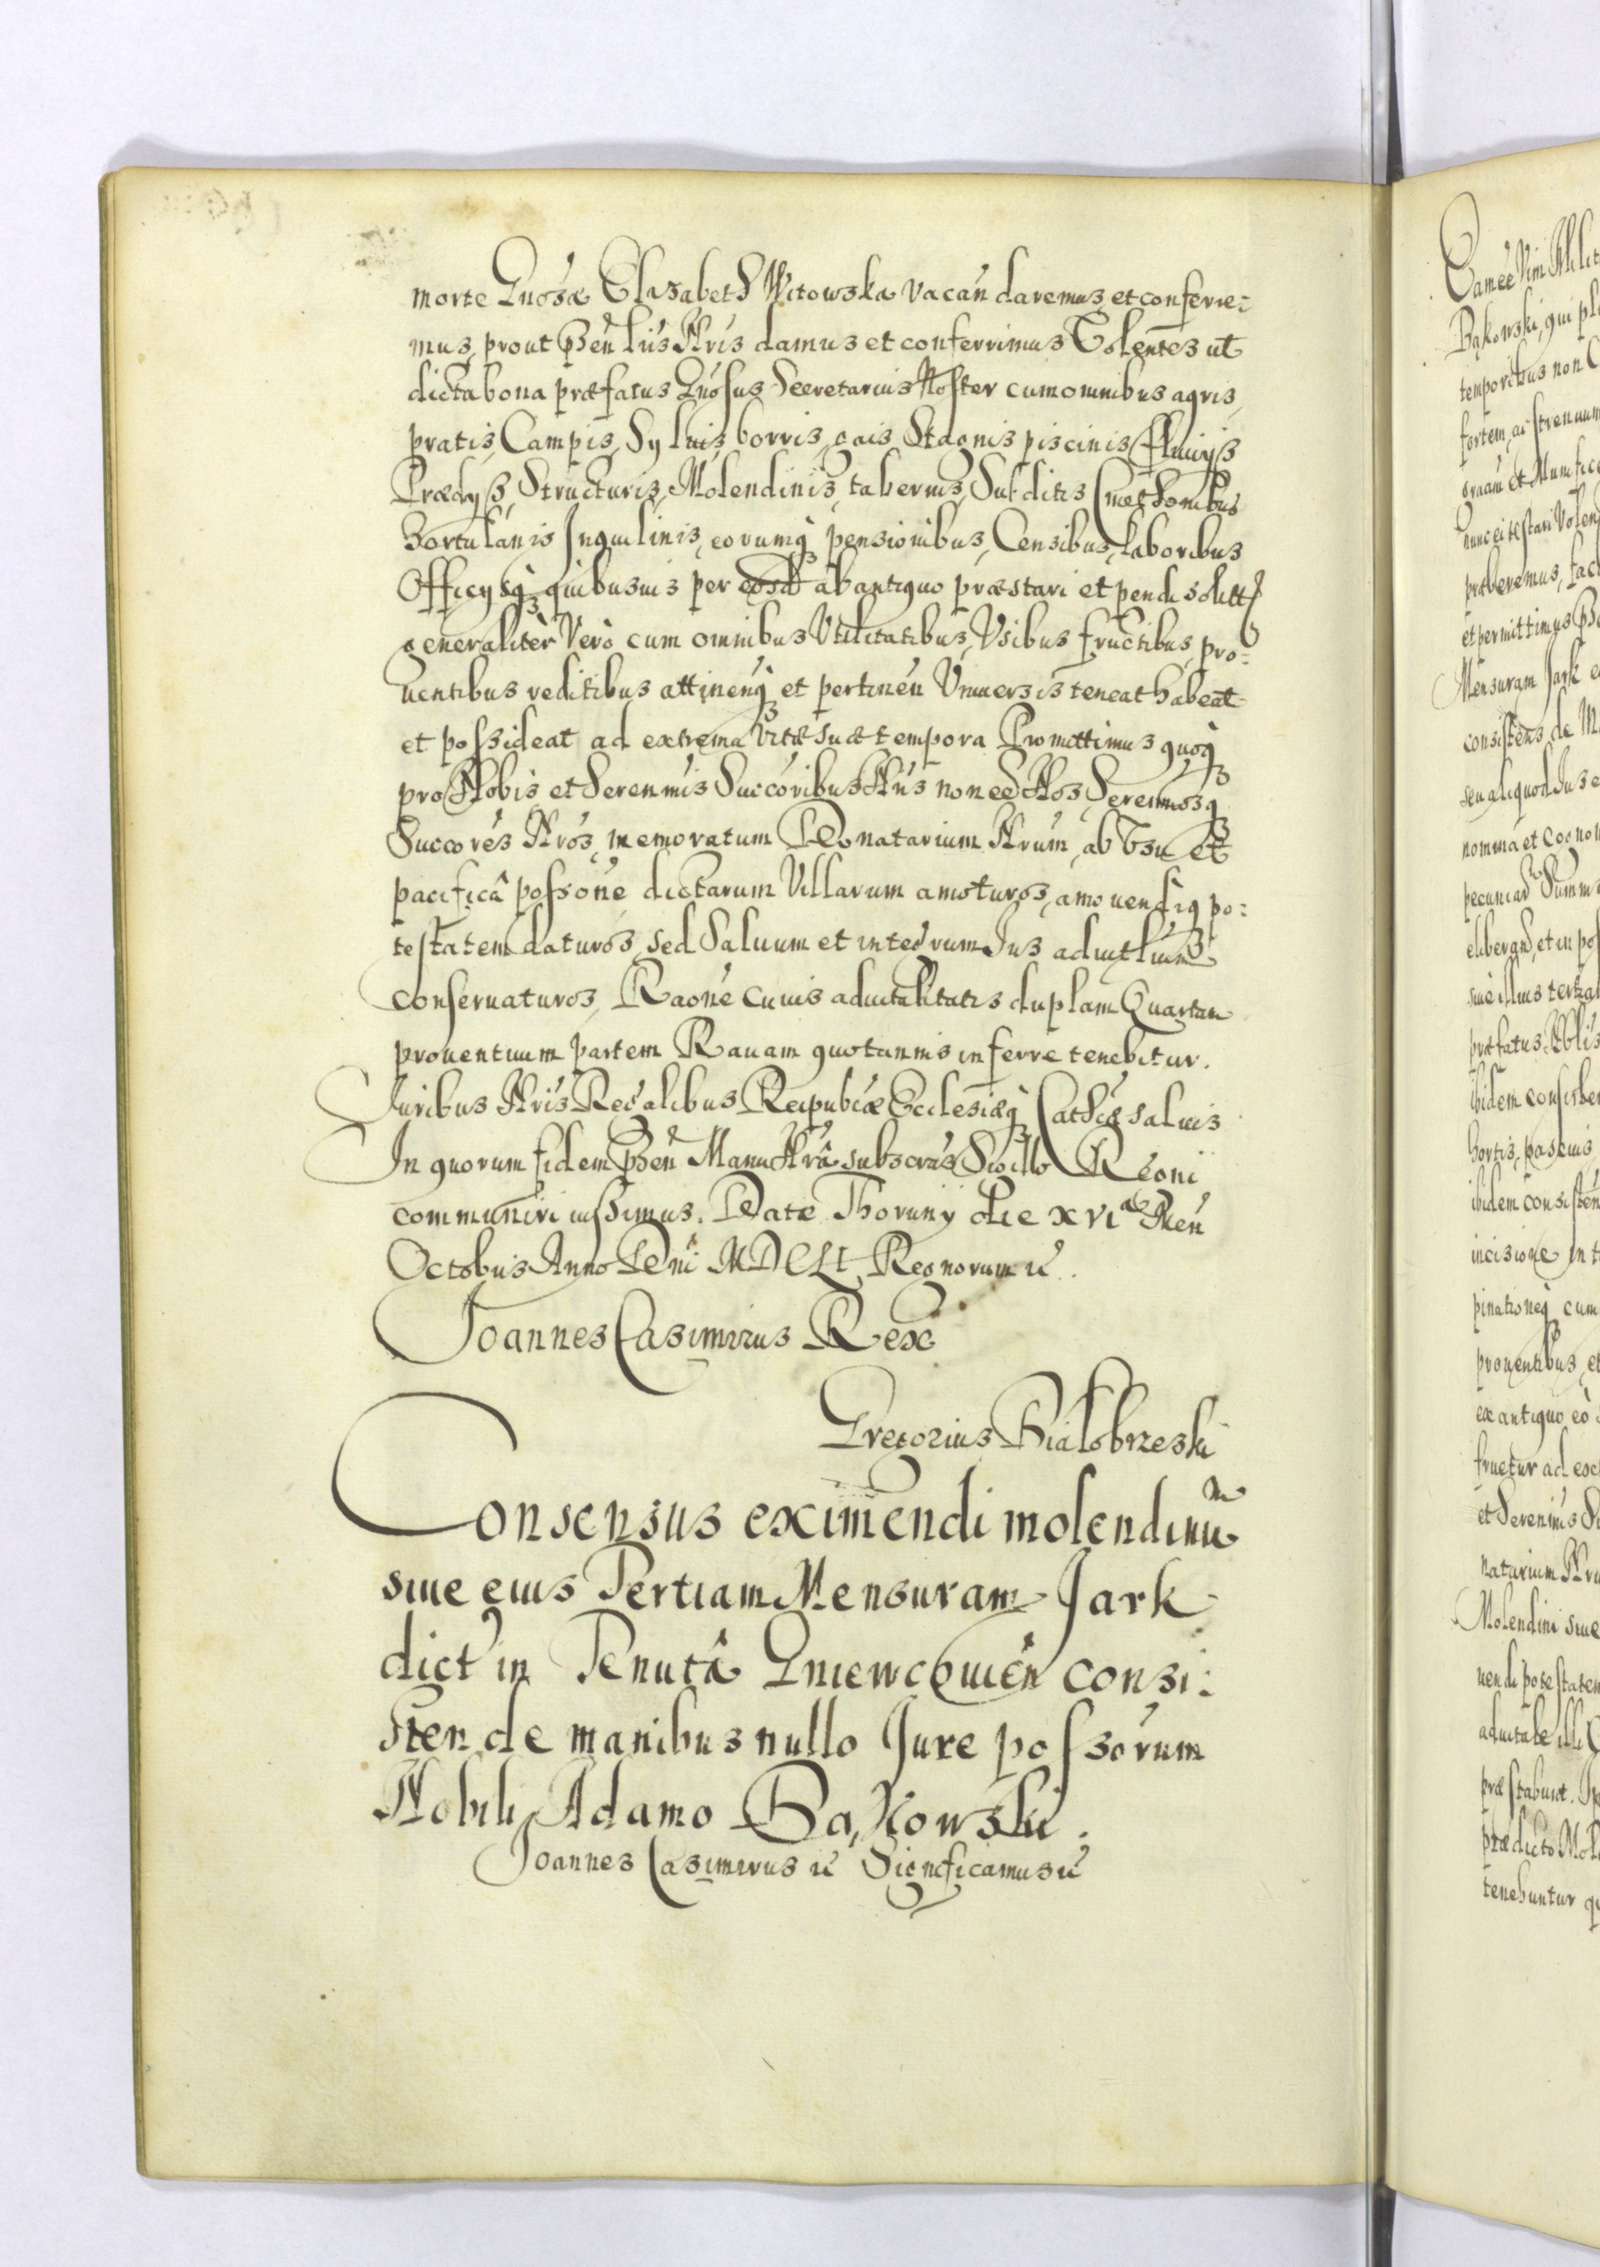 morte Gnosæ Elisabeth Witowska vacań daremus et conferre:
mus, prout p̄sen lr̃is Nr̃is damus et conferrimus Volentes ut
dicta bona præfatus Gnosus Secretarius Noster cum omnibus agris,
pratis, Campis, Syluis, borris, gais Stagnis piscinis Fluuÿs
Prædÿs, Structuris, Molendinis, tabernis, Subditis Cmethonibus
Hortulanis Inquilinis, eorumq̃ pensionibus, Censibus, laboribus
Officÿsq̃ quibusuis per eosd ab antiquo præstari et pendi solitis
generaliter Verò cum omnibus Vtilitatibus, Vsibus fructibus, pro:
uentibus reditibus attineńq̃ et pertineń Vniuersis teneat habeat
et possideat ad extrema Vitæ suæ tempora Promittimus quoq̃
pro Nobis et Serenmis Succoribus Nr̃is non eē Nos, Serenmosq̃
Succores Nros, memoratum Donatarium Nrum, ab Vsu et
pacificâ possōne dictarum Villarum amoturos, amouendiq̃ po:
testatem daturos, sed Saluum et integrum Jus aduitlium
conseruaturos, Raōne cuius aduitalitatis duplam Quartam
prouentuum partem Rauam quotannis inferre tenebitur.
Juribus Nris Regalibus Reipubcæ Ecclesiæq̃ Cathcæ saluis
In quorum fidem p̄sen Manu Nrâ subscrās Sigillo Regni
communiri iussimus. Datæ Thorunÿ die XVI Meń
Octobris Anno Dni MDCLV Regnorum ĩc
Joannes Casimirus Rex
Gregorius Białobrzeski
Consensus eximendi molendinū
siue eius Tertiam Mensuram Jark
dict in Tenutâ Gniewcouień consi:
sten de manibus nullo Jure possorum
Nobili Adamo Bąkowski.
Joannes Casimirus ĩc Significamus ĩc